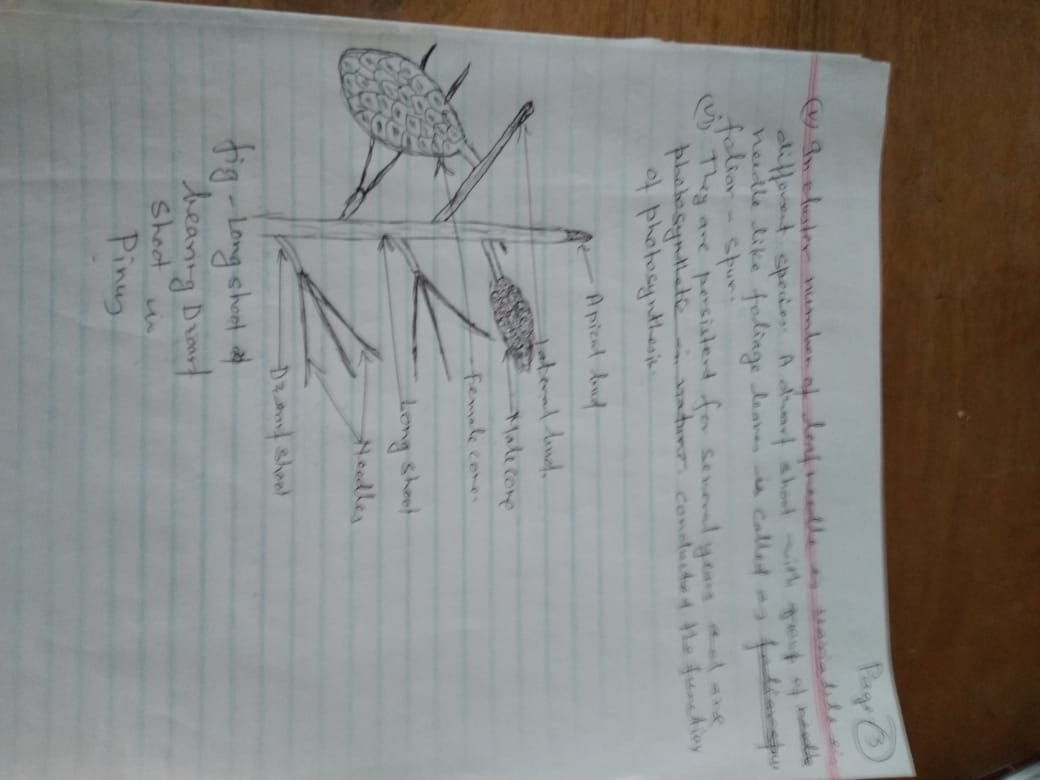 Page 3
(v) In cluster number of leaf needle is variable in
different species. A dwarf shoot with group of
needle like foliage leaves is called as
foliar - spur.
(vi) They are persistent for several years and are
photosynthetic in nature. conducted the function
of photosynthesis.
Apical bud
Lateral bud.
Male cone
Female cone.
Long shoot
Needles
Dwarf shoot
fig - Long shoot
bearing Dwarf
shoot in
Pinus